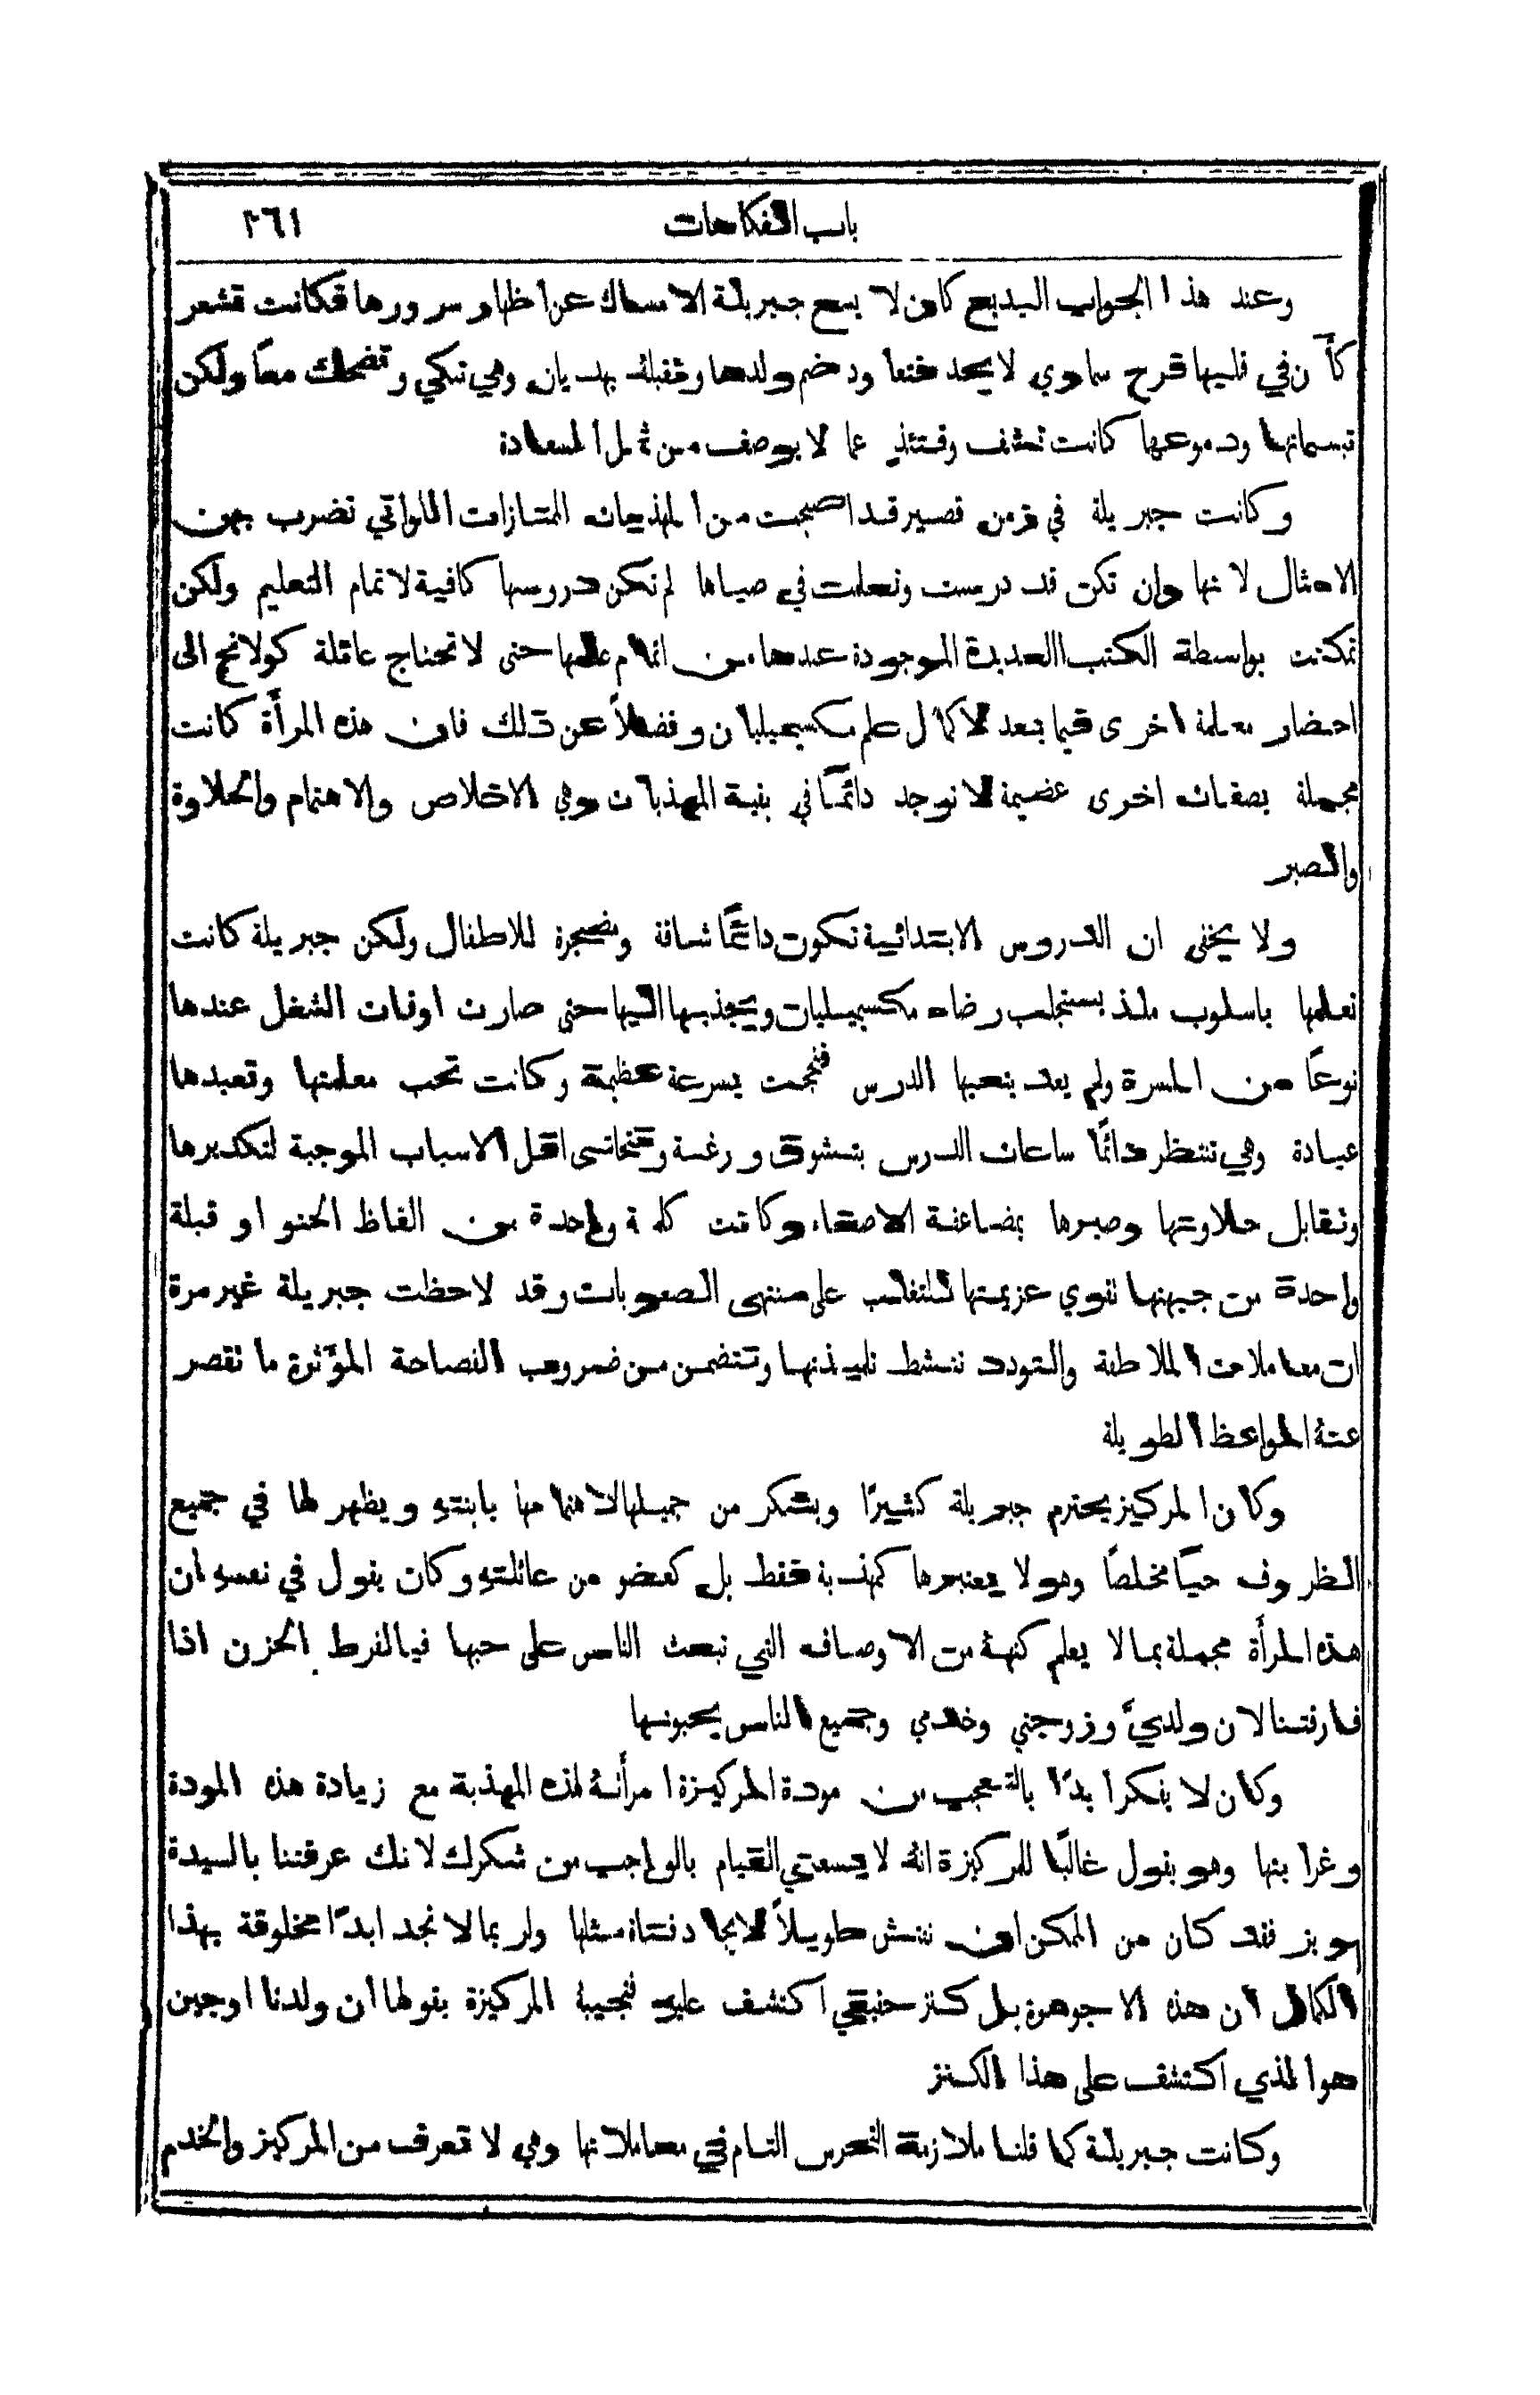 باب الفكاهات ٢٦١
وعند هذا الجواب البديع كان لا يسع جبريلة الامساك عن اظهار سرورها فكانت تشعر
كأن في قلبها فرح سماوي لا يحد فتعاود ضم ولدها وتقبله بهديان وهي تبكي وتضحك معًا ولكن
تبسماتها ودموعها كانت تشف وقتئذٍ عما لا يوصف من ثمل السعادة
وكانت جبريلة في زمن قصير قد اصبحت من المهذبات الممتازات اللواتي تضرب بهن
الامثال لانها وان تكن قد درست وتعلمت في صباها لم تكن دروسها كافية لاتمام التعليم ولكن
تمكنت بواسطة الكتب العديدة الموجودة عندها من اتمام علمها حتى لا تحتاج عائلة كولانج الى
احضار معلمة اخرى فيما بعد لاكمال علم مكسيميليان وفضلاً عن ذلك فان هذه المرأة كانت
مجملة بصفات اخرى عظيمة لا توجد دائمًا في بقية المهذبات وهي الاخلاص والاهتمام والحلاوة
والصبر
ولا يخفى ان الدروس الابتدائية تكون دائمًا شاقة ومضجرة للاطفال ولكن جبريلة كانت
تعلمها باسلوب ملذ يستجلب رضاء مكسيميليان ويجذبها اليها حتى صارت اوقات الشغل عندها
نوعًا من المسرة ولم يعد يتعبها الدرس فنجحت بسرعة عظيمة وكانت تحب معلمتها وتعبدها
عبادة وهي تنتظر دائمًا ساعات الدرس بتشوق ورغبة وتتحاشى اقل الاسباب الموجبة لتكديرها
وتقابل حلاوتها وصبرها بمضاعفة الاصغاء وكانت كلمة واحدة من الفاظ الحنو او قبلة
واحدة من جبهتها تقوي عزيمتها للتغلب على منتهى الصعوبات وقد لاحظت جبريلة غير مرة
ان معاملات الملاطفة والتودد تنشط تلميذتها وتتضمن من ضروب الفصاحة المؤثرة ما تقصر
عنه المواعظ الطويلة
وكان المركيز يحترم جبريلة كثيرًا ويشكر من جميلها لاهتمامها بابنته ويظهر لها في جميع
الظروف حبًا مخلصًا وهو لا يعتبرها كمهذبة فقط بل كعضو من عائلته وكان يقول في نفسه ان
هذه المرأة مجملة بما لا يعلم كنهه من الاوصاف التي تبعث الناس على حبها فيا لفرط الحزن اذا
فارقتنا لان ولديَّ وزوجتي وخدمي وجميع الناس يحبونها
وكان لا يفكر ابدًا بالتعجب من مودة المركيزة امرأته لهذه المهذبة مع زيادة هذه المودة
وغرابتها وهو يقول غالبًا للمركيزة انه لا يسعني القيام بالواجب من شكرك لانك عرفتنا بالسيدة
لويز فقد كان من الممكن ان نفتش طويلاً لايجاد فتاة مثلها ولربما لا نجد ابدًا مخلوقة بهذا
الكمال ان هذه الا جوهرة بل كنز حقيقي اكتشف عليه فتجيبه المركيزة بقولها ان ولدنا اوجين
هو الذي اكتشف على هذا الكنز
وكانت جبريلة كما قلنا ملازمة التحرس التام في معاملاتها وهي لا تعرف من المركيز والخدم